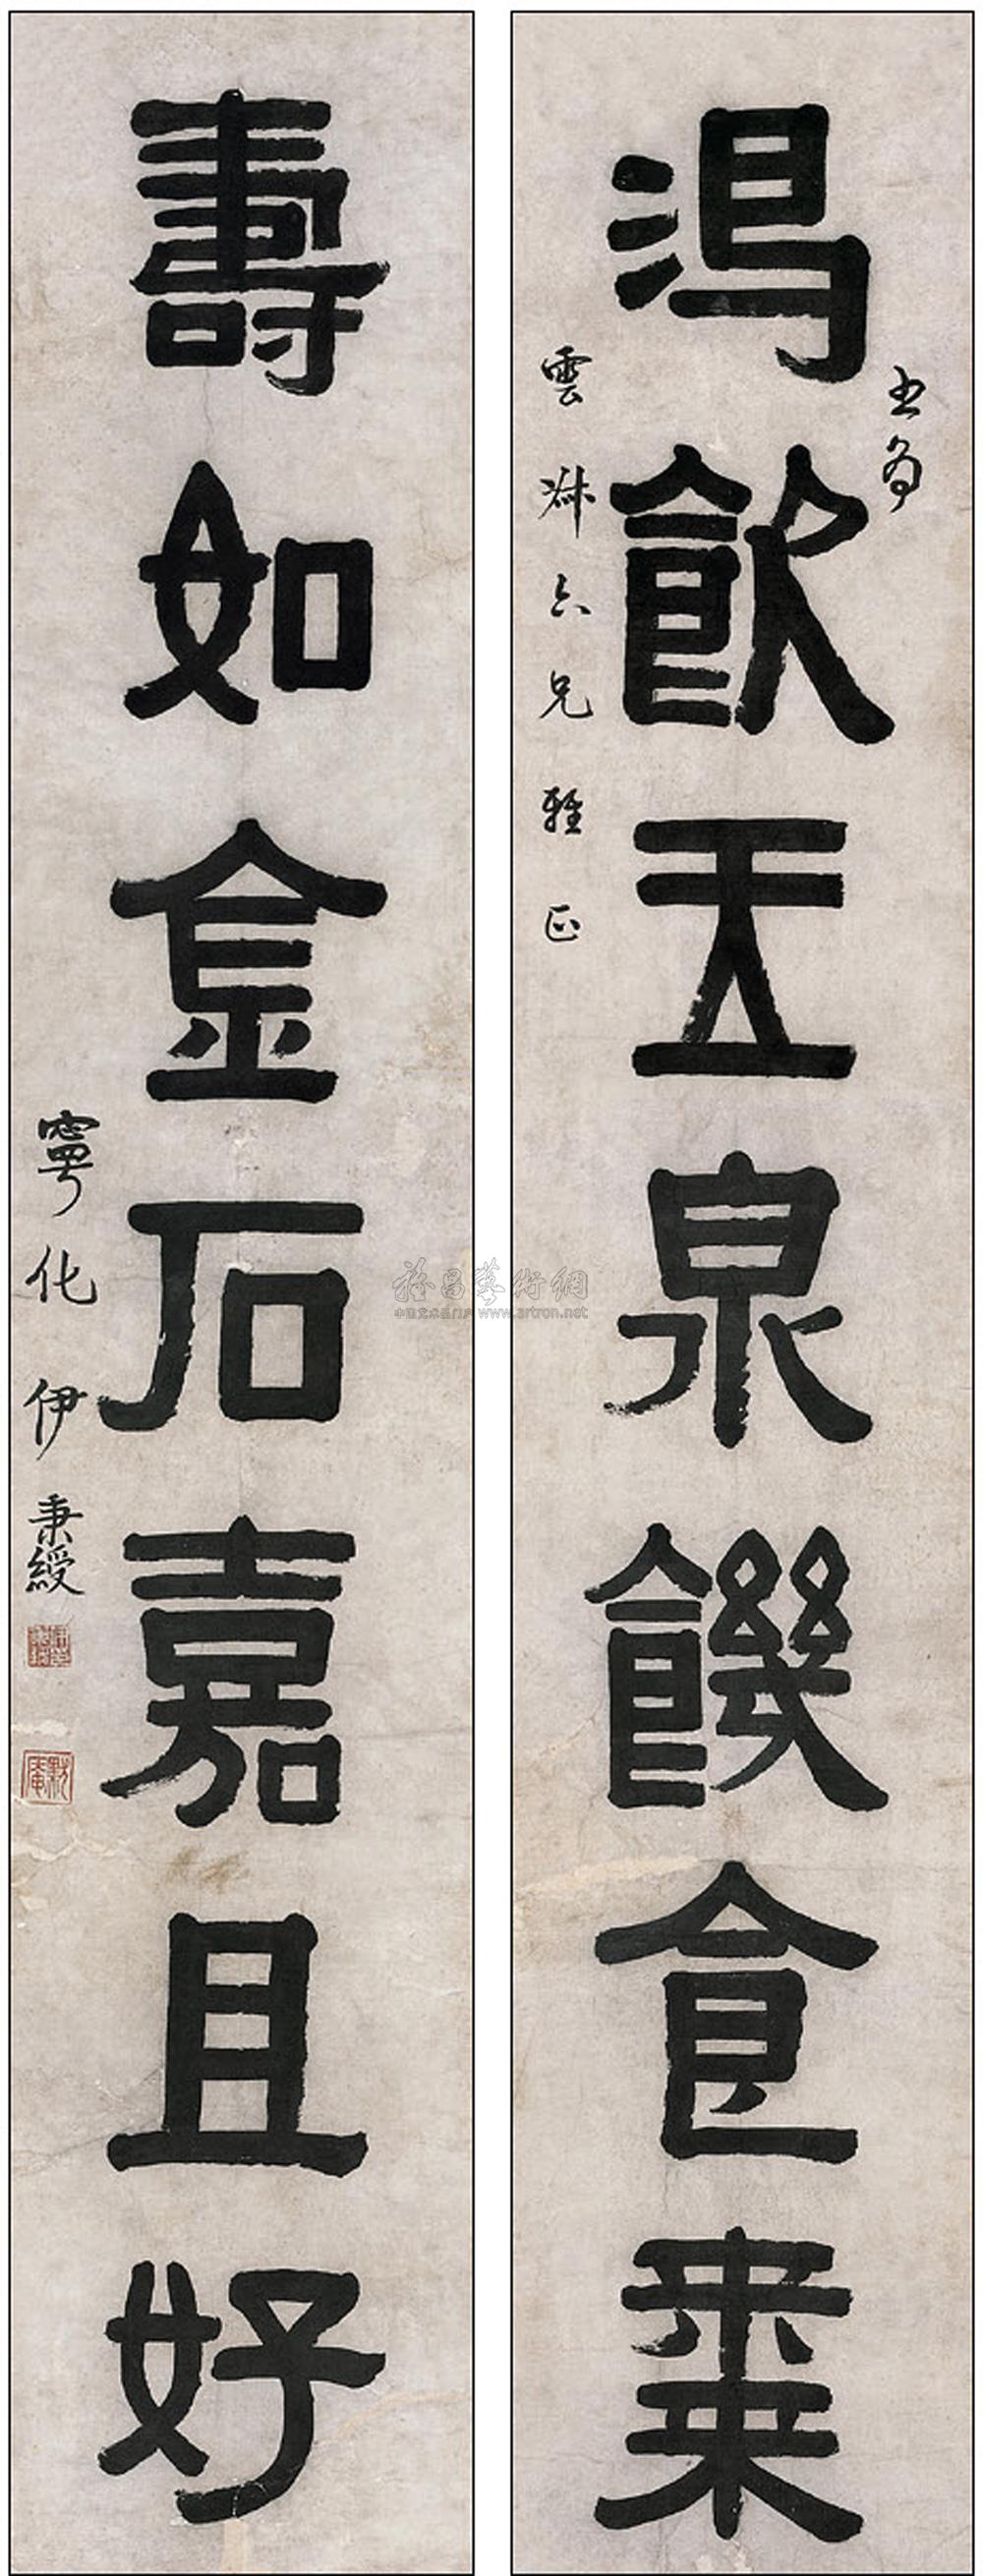 渴飲玉泉饑食棗
書為
雲六兄雅正
壽如金石嘉且好
寧化伊秉綬
默庵
雅昌藝術網
中国艺术品门户 www.artron.net